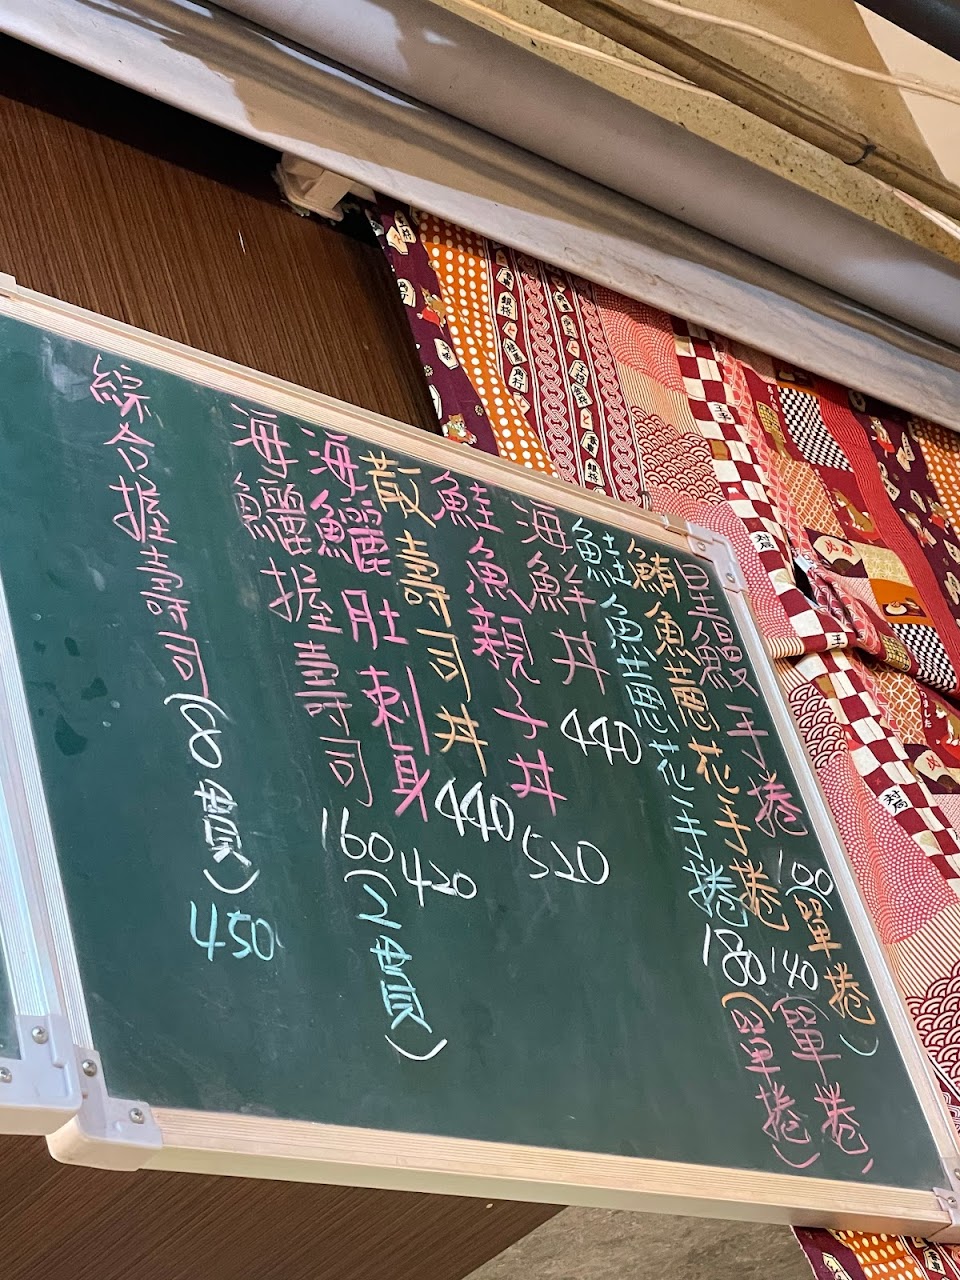 星鰻手捲 100(單捲)
鯖魚蔥花手捲 140(單捲)
鮭魚蔥花手捲 180(單捲)
海鮮丼 440
鮭魚親子丼 520
散壽司丼 440
海鱺肚刺身 420
海鱺握壽司 160(2貫)
綜合握壽司(8貫) 450
銀将
角行
対局
対局